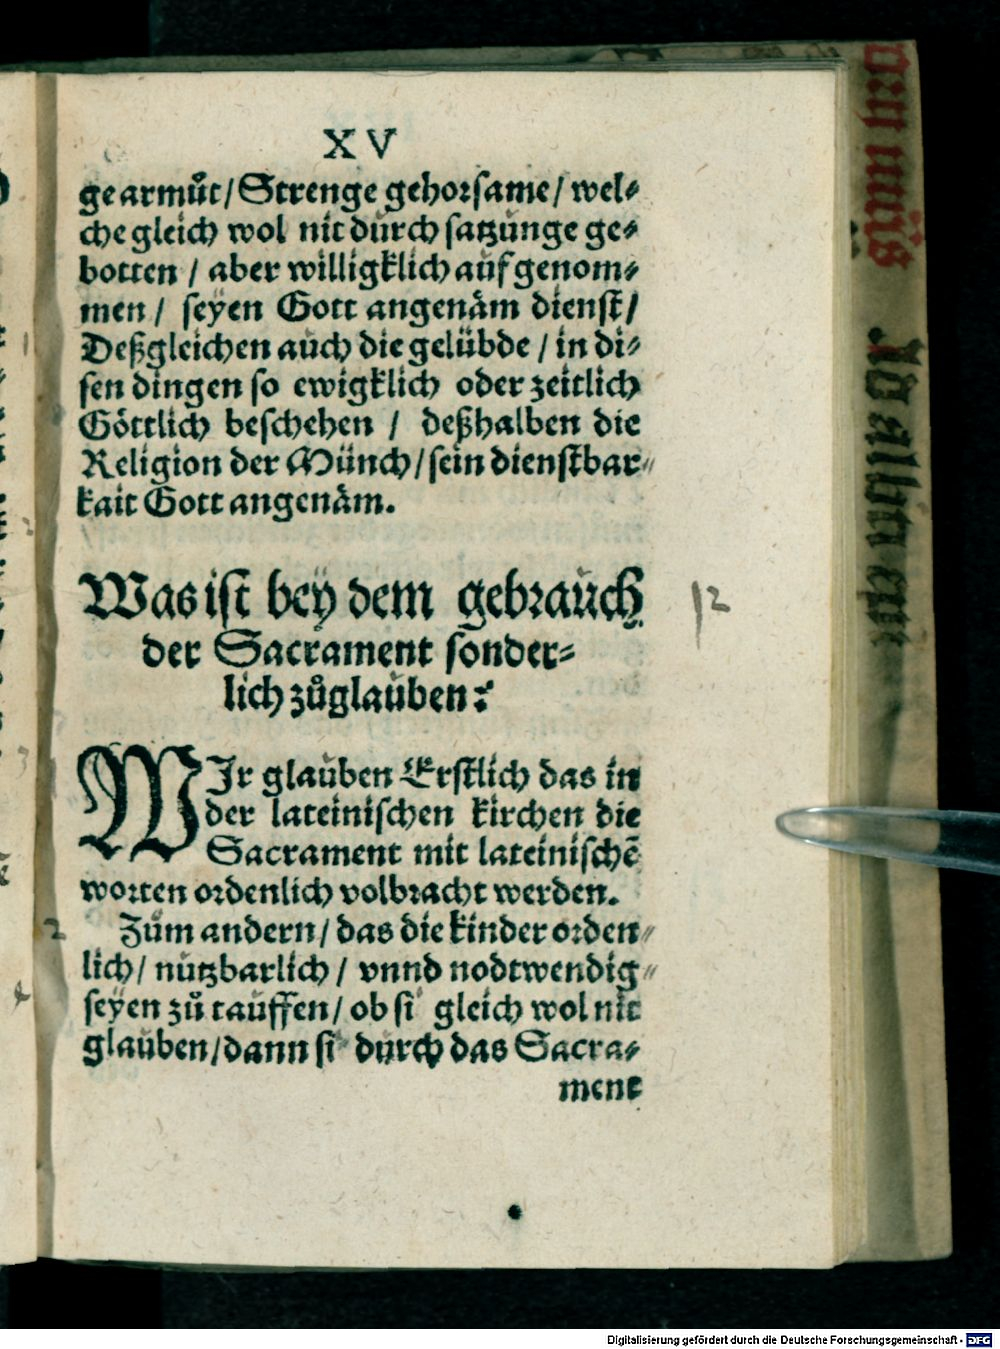 XV
ge armůt/ Strenge gehorsame/ wel⸗
che gleich wol nit durch satzunge ge⸗
botten / aber willigklich aufgenom⸗
men/ seyen Gott angenäm dienst/
Deßgleichen auch die gelübde / in di⸗
sen dingen so ewigklich oder zeitlich
Göttlich beschehen / deßhalben die
Religion der Münch/ sein dienstbar⸗
kait Gott angenäm.
Was ist bey dem gebrauch
der Sacrament sonder⸗
lich zůglauben?
12
WIr glauben Erstlich das in
der lateinischen kirchen die
Sacrament mit lateinischē
worten ordenlich volbracht werden.
Zum andern/ das die kinder orden⸗
lich/ nutzbarlich/ vnnd nodtwendig⸗
seyen zů tauffen/ ob si gleich wol nit
glauben/ dann si durch das Sacra⸗
ment
2
Digitalisierung gefördert durch die Deutsche Forschungsgemeinschaft - DFG